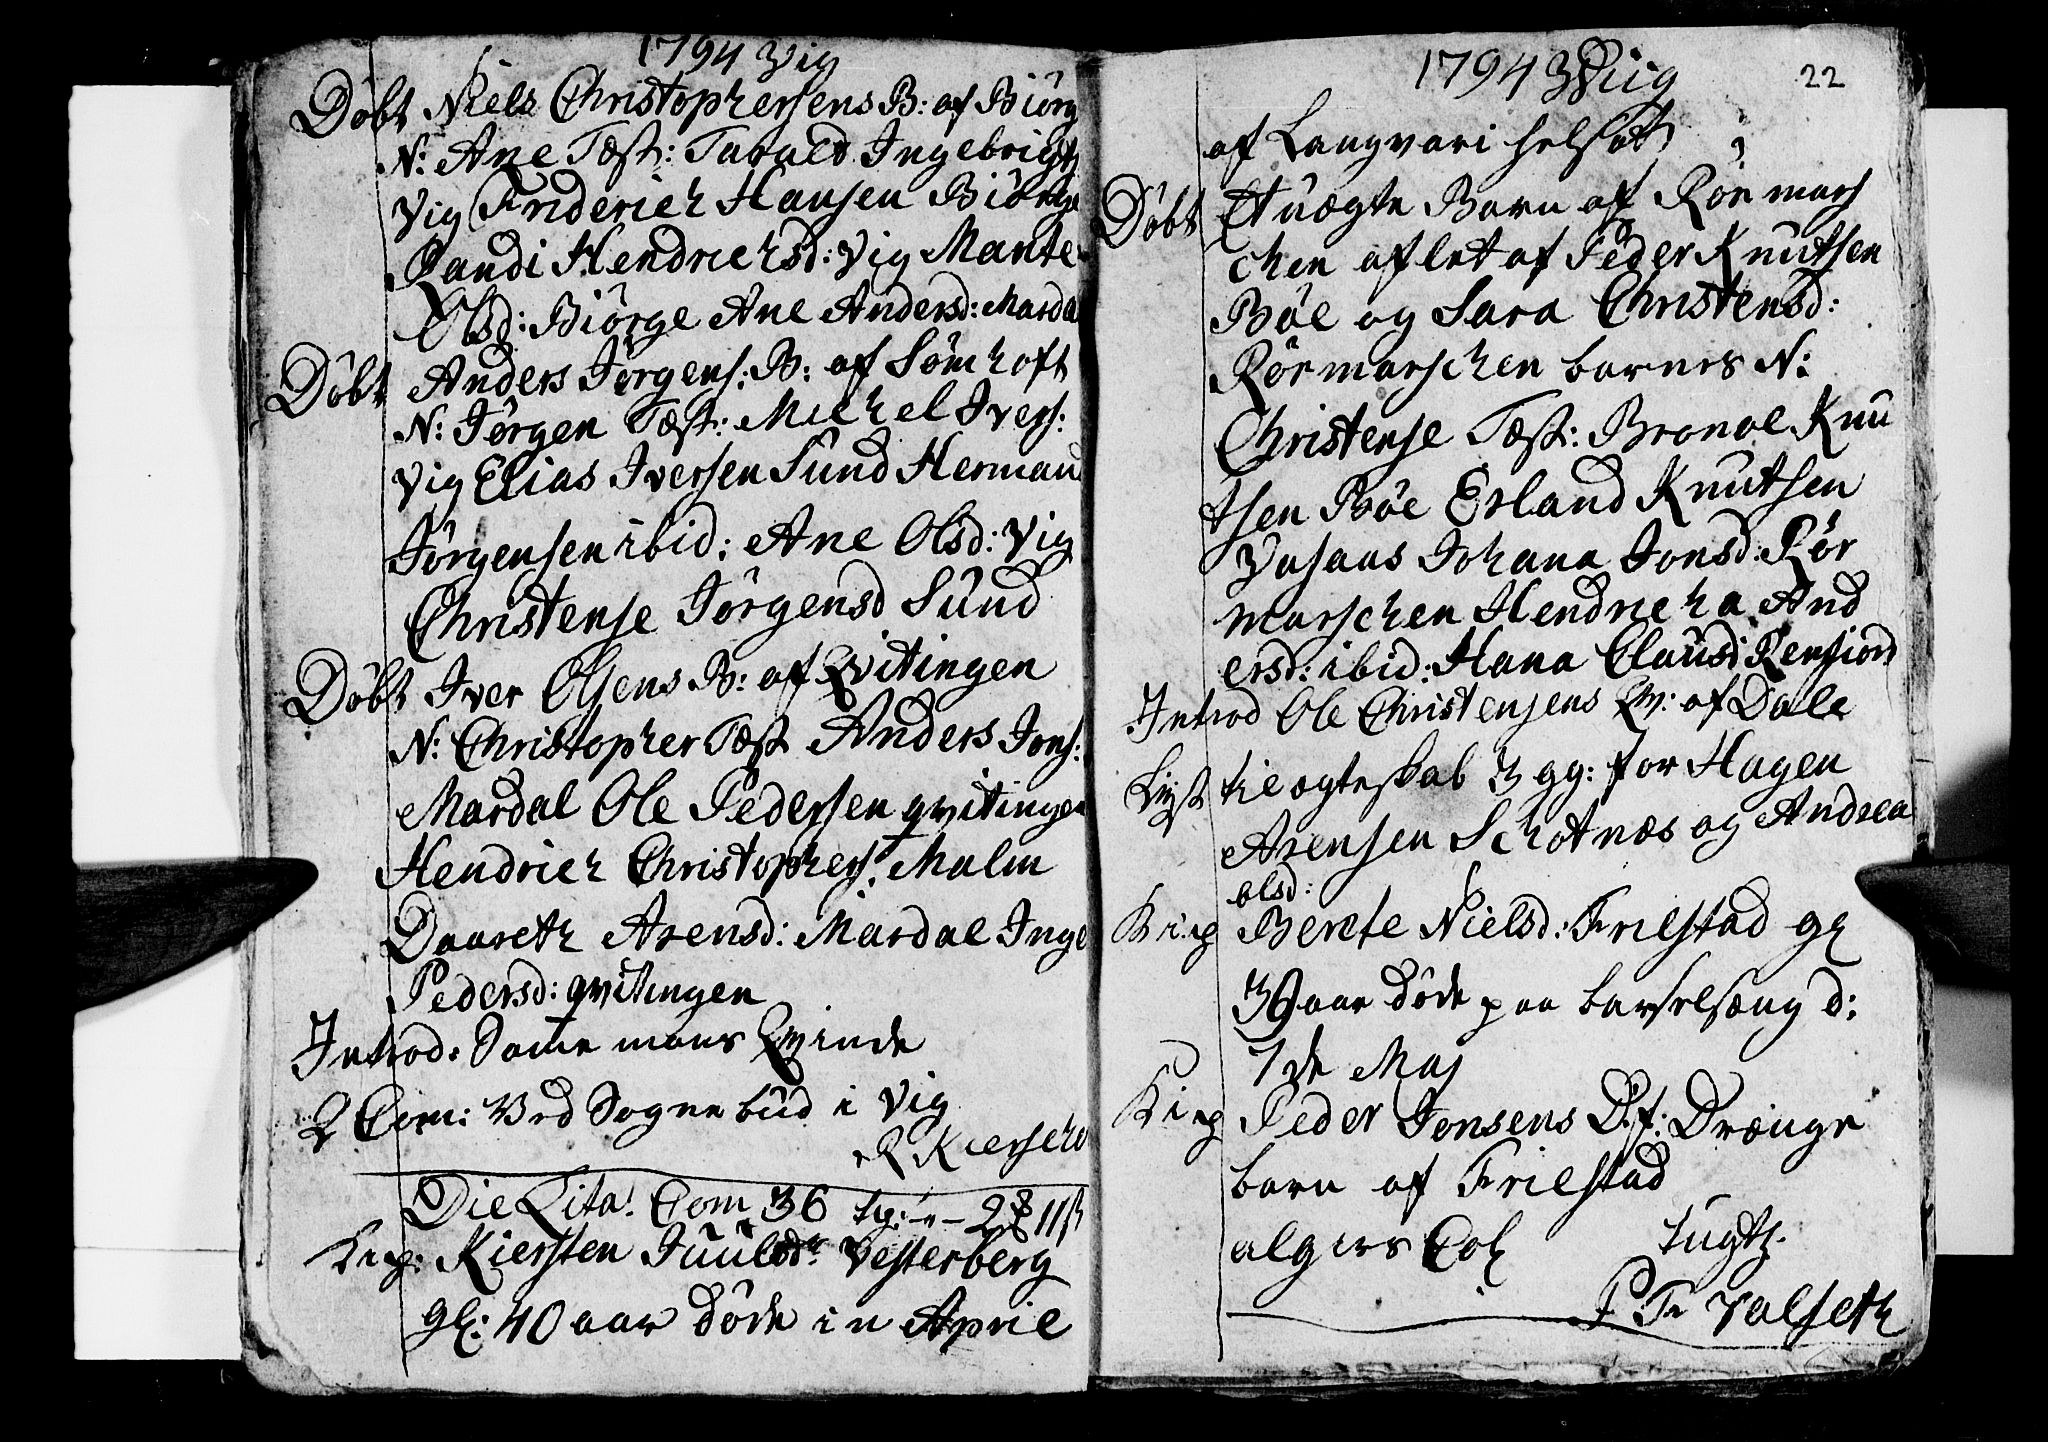 1794 Vig
Döbt Niels Christophersens B: af Biörg
N: Ane Test: Tarald Ingebrigts
Vig Friderich Hansen Biörge
Randi Hendrichsd: Vig Marite
Olsd: Biörge Ane Andersd: Mardal
Döbt Anders Jörgens: B: af Sömhoft
N: Jörgen Test: Michel Ivers:
Vig Elias Iversen Sund Herman
Jörgensen ibid: Ane Olsd: Vig
Christense Jörgensd Sund
Döbt Iver Olsens B: af Qvitingen
N: Christopher Test Anders Jons:
Mardal Ole Pedersen qvitingen
Hendrich Christophers: Malm
Daareth Arensd: Mardal Inge
Pedersd: qvitingen
Introd: Samme mans Qvinde
2 Com: Ved Sognebud i Vig
R Kierscho
Die Lita! Com 36 2 11ß
Kieg: Kiersten Juulsdr Vesterberg
gl: 40 aar döde in April
1794 Wiig 22
af Langvari helsot
Döbt Et uægte Barn af Rörmars
chen aflet af Peder Knutsen
Böe og Sara Christensd:
Rörmarschen barnets N:
Christense Test: Bronol Knu
tsen Böe Erland Knutsen
Vusaas Johana Jonsd: Rör
marschen Hendricha And
ersd: ibid: Hana Clausd Rensiord
Introd Ole Christensens Qv: af Dale
Lyst til ægteskab 3 gg: for Hagen
Arensen Schotnæs og Andrea
olsd:
Kieg Berete Nielsd: Frilstad gl
39 aar döde paa barselsæng d:
7de Maj
Kieg Peder Jonsens D.f: Drænge
barn af Frilstad
algers Col
P Fr Valseth